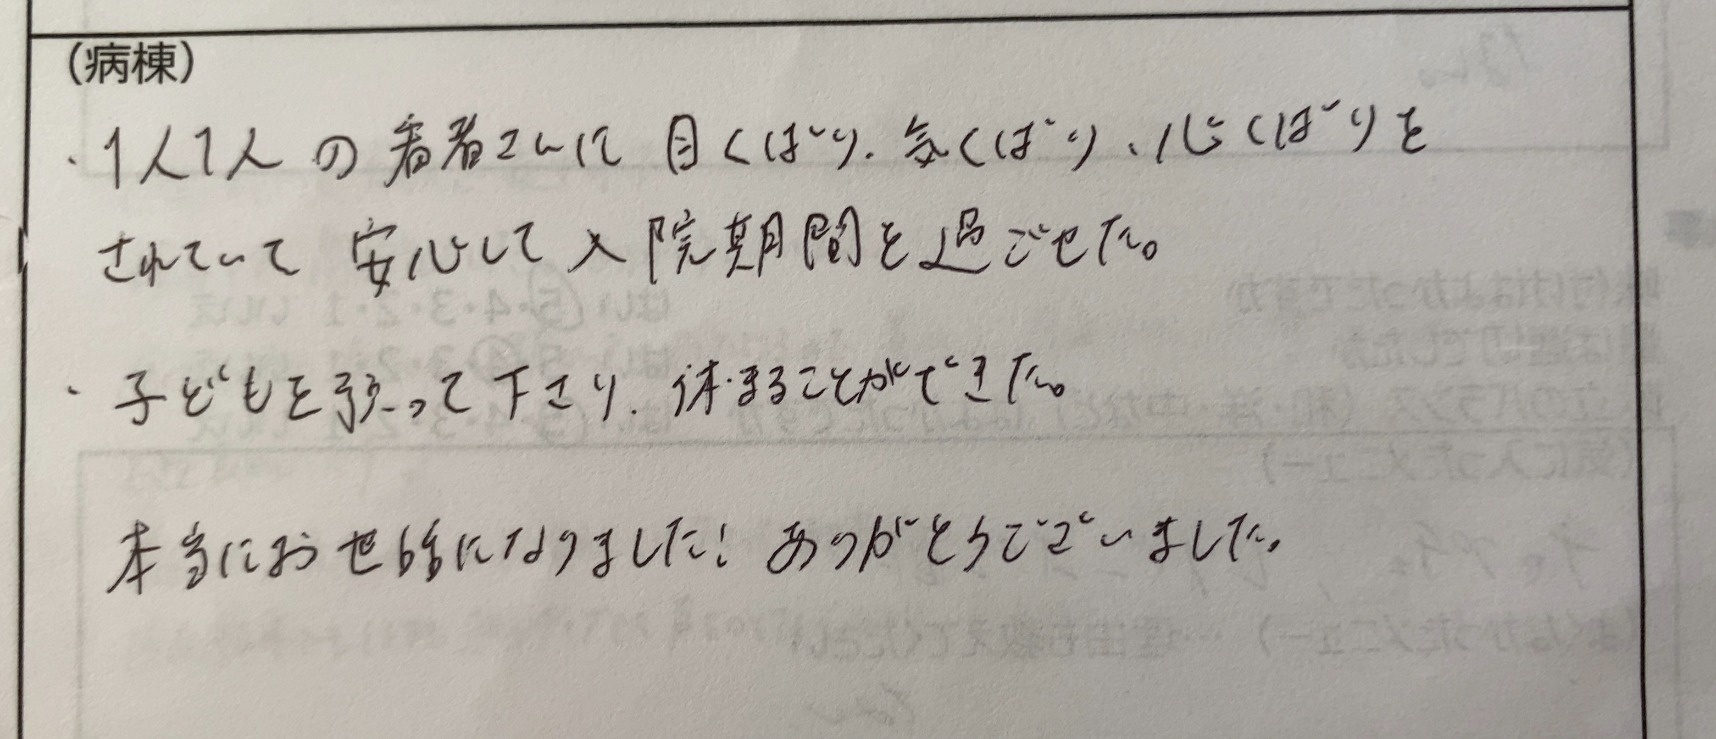 (病棟)
・1人1人の患者さんに目くばり、気くばり、心くばりを
されていて安心して入院期間を過ごせた。
・子どもを預って下さり、休まることができた。
本当にお世話になりました! ありがとうございました。